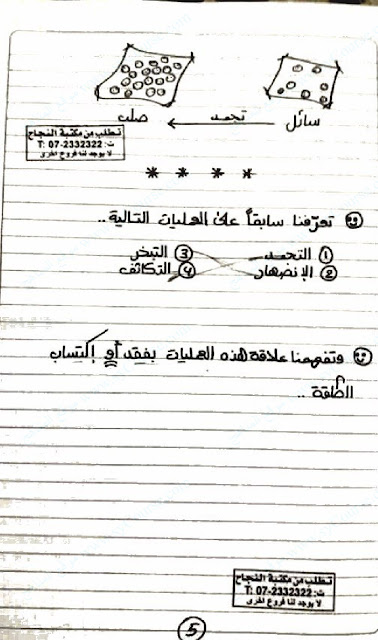 سائل تجمد صلب
تطلب من مكتبة النجاح
ت: 07-2332322 :T
لا يوجد لنا فروع اخرى
* * * *
تعرّفنا سابقاً على العمليات التالية ..
① التجمد ③ التبخر
② الإنصهار ④ التكاثف
وتفهمنا علاقة هذه العمليات بفقد أو إكتساب
الطاقة ..
تطلب من مكتبة النجاح
ت: 07-2332322 :T
لا يوجد لنا فروع اخرى
5